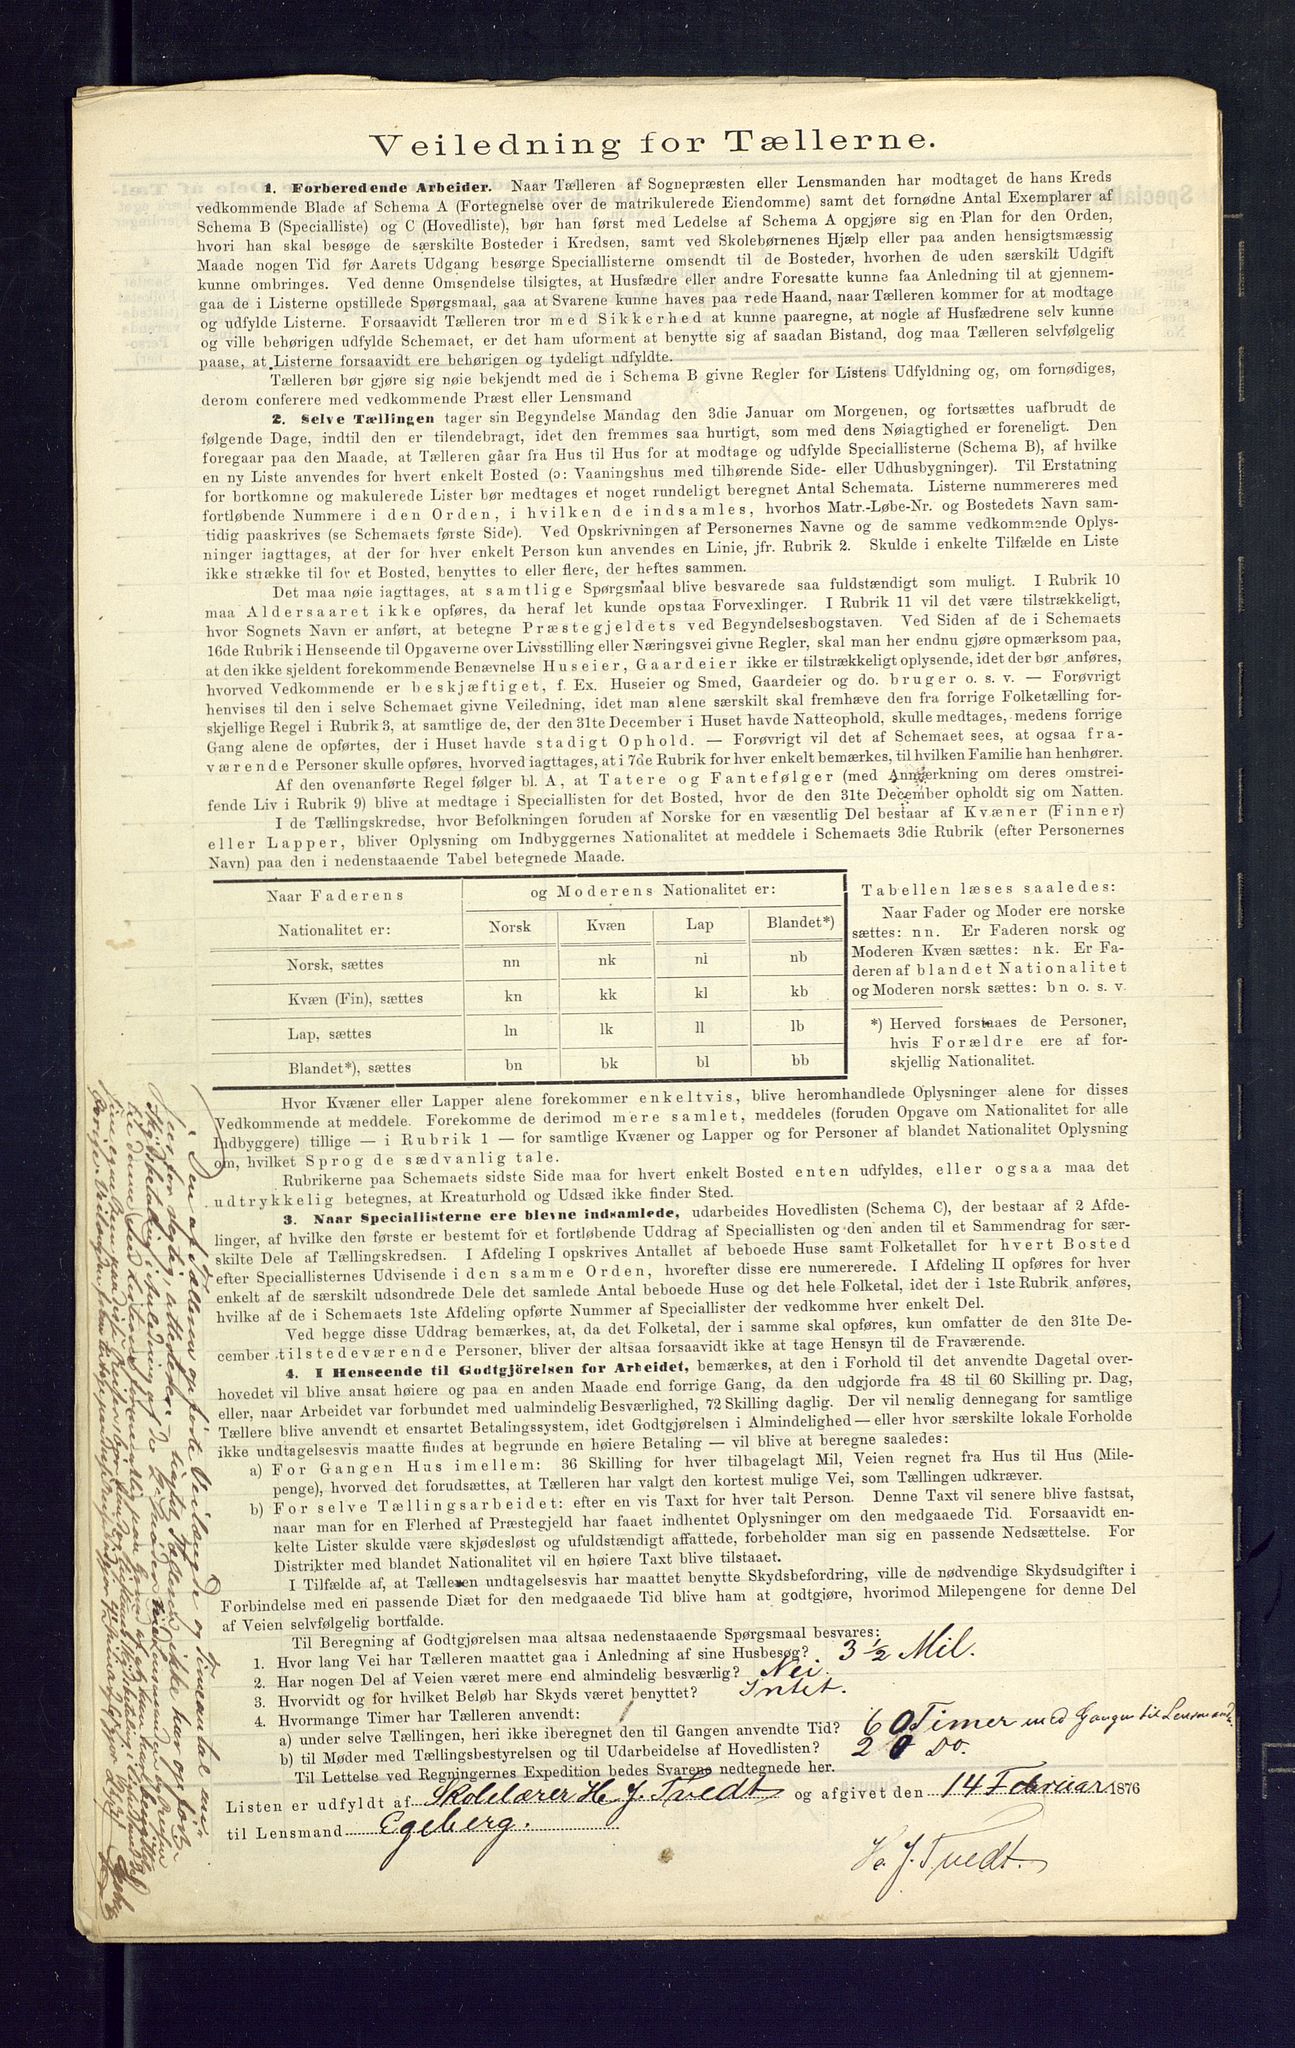 Veiledning for Tællerne.
1. Forberedende Arbeider. Naar Tælleren af Sognepræsten eller Lensmanden har modtaget de hans Kreds
vedkommende Blade af Schema A (Fortegnelse over de matrikulerede Eiendomme) samt det fornødne Antal Exemplarer af
Schema B (Specialliste) og C (Hovedliste), bør han først med Ledelse af Schema A opgjøre sig en Plan for den Orden,
hvori han skal besøge de særskilte Bosteder i Kredsen, samt ved Skolebørnenes Hjælp eller paa anden hensigtsmæssig
Maade nogen Tid før Aarets Udgang besørge Speciallisterne omsendt til de Bosteder, hvorhen de uden særskilt Udgift
kunne ombringes. Ved denne Omsendelse tilsigtes, at Husfædre eller andre Foresatte kunne faa Anledning til at gjennem-
gaa de i Listerne opstillede Spørgsmaal, saa at Svarene kunne haves paa rede Haand, naar Tælleren kommer for at modtage
og udfylde Listerne. Forsaavidt Tælleren tror med Sikkerhed at kunne paaregne, at nogle af Husfædrene selv kunne
og ville behørigen udfylde Schemaet, er det ham uforment at benytte sig af saadan Bistand, dog maa Tælleren selvfølgelig
paase, at Listerne forsaavidt ere behørigen og tydeligt udfyldte.
Tælleren bør gjøre sig nøie bekjendt med de i Schema B givne Regler for Listens Udfyldning og, om fornødiges,
derom conferere med vedkommende Præst eller Lensmand
2. Selve Tællingen tager sin Begyndelse Mandag den 3die Januar om Morgenen, og fortsættes uafbrudt de
følgende Dage, indtil den er tilendebragt, idet den fremmes saa hurtigt, som med dens Nøiagtighed er foreneligt. Den
foregaar paa den Maade, at Tælleren gåar fra Hus til Hus for at modtage og udfylde Speciallisterne (Schema B), af hvilke
en ny Liste anvendes for hvert enkelt Bosted (ɔ: Vaaningshus med tilhørende Side- eller Udhusbygninger). Til Erstatning
for bortkomne og makulerede Lister bør medtages et noget rundeligt beregnet Antal Schemata. Listerne nummereres med
fortløbende Nummere i den Orden, i hvilken de indsamles, hvorhos Matr.-Løbe-Nr. og Bostedets Navn sam-
tidig paaskrives (se Schemaets første Side). Ved Opskrivningen af Personernes Navne og de samme vedkommende Oplys-
ninger iagttages, at der for hver enkelt Person kun anvendes en Linie, jfr. Rubrik 2. Skulde i enkelte Tilfælde en Liste
ikke strække til for et Bosted, benyttes to eller flere, der heftes sammen.
Det maa nøie iagttages, at samtlige Spørgsmaal blive besvarede saa fuldstændigt som muligt. I Rubrik 10
maa Aldersaaret ikke opføres, da heraf let kunde opstaa Forvexlinger. I Rubrik 11 vil det være tilstrækkeligt,
hvor Sognets Navn er anført, at betegne Præstegjeldets ved Begyndelsesbogstaven. Ved Siden af de i Schemaets
16de Rubrik i Henseende til Opgaverne over Livsstilling eller Næringsvei givne Regler, skal man her endnu gjøre opmærksom paa,
at den ikke sjeldent forekommende Benævnelse Huseier, Gaardeier ikke er tilstrækkeligt oplysende, idet der bør anføres,
hvorved Vedkommende er beskjæftiget, f. Ex. Huseier og Smed, Gaardeier og do. bruger o. s. v. — Forøvrigt
henvises til den i selve Schemaet givne Veiledning, idet man alene særskilt skal fremhæve den fra forrige Folketælling for-
skjellige Regel i Rubrik 3, at samtlige de, der den 31te December i Huset havde Natteophold, skulle medtages, medens forrige
Gang alene de opførtes, der i Huset havde stadigt Ophold. — Forøvrigt vil det af Schemaet sees, at ogsaa fra-
værende Personer skulle opføres, hvorved iagttages, at i 7de Rubrik for hver enkelt bemærkes, til hvilken Familie han henhører.
Af den ovenanførte Regel følger bl. A, at Tatere og Fantefølger (med Anmærkning om deres omstrei-
fende Liv i Rubrik 9) blive at medtage i Speciallisten for det Bosted, hvor de den 31te December opholdt sig om Natten.
I de Tællingskredse, hvor Befolkningen foruden af Norske for en væsentlig Del bestaar af Kvæner (Finner)
eller Lapper, bliver Oplysning om Indbyggernes Nationalitet at meddele i Schemaets 3die Rubrik (efter Personernes
Navn) paa den i nedenstaaende Tabel betegnede Maade.
Naar Faderens og Moderens Nationalitet er:
Nationalitet er: Norsk Kvæn Lap Blandet*)
Norsk, sættes nn nk nl nb
Kvæn (Fin), sættes kn kk kl kb
Lap, sættes ln lk ll lb
Blandet*), sættes bn bk bl bb
Tabellen læses saaledes:
Naar Fader og Moder ere norske
sættes: nn. Er Faderen norsk og
Moderen Kvæn sættes: nk. Er Fa-
deren af blandet Nationalitet
og Moderen norsk sættes: bn o. s. v.
*) Herved forstaaes de Personer,
hvis Forældre ere af for-
skjellig Nationalitet.
Hvor Kvæner eller Lapper alene forekommer enkeltvis, blive heromhandlede Oplysninger alene for disses
Vedkommende at meddele. Forekomme de derimod mere samlet, meddeles (foruden Opgave om Nationalitet for alle
Indbyggere) tillige — i Rubrik 1 — for samtlige Kvæner og Lapper og for Personer af blandet Nationalitet Oplysning
om, hvilket Sprog de sædvanlig tale.
Rubrikerne paa Schemaets sidste Side maa for hvert enkelt Bosted enten udfyldes, eller ogsaa maa det
udtrykkelig betegnes, at Kreaturhold og Udsæd ikke finder Sted.
3. Naar Speciallisterne ere blevne indsamlede, udarbeides Hovedlisten (Schema C), der bestaar af 2 Afde-
linger, af hvilke den første er bestemt for et fortløbende Uddrag af Speciallisten og den anden til et Sammendrag for sær-
skilte Dele af Tællingskredsen. I Afdeling I opskrives Antallet af beboede Huse samt Folketallet for hvert Bosted
efter Speciallisternes Udvisende i den samme Orden, hvorefter disse ere numererede. I Afdeling II opføres for hver
enkelt af de særskilt udsondrede Dele det samlede Antal beboede Huse og det hele Folketal, idet der i 1ste Rubrik anføres,
hvilke af de i Schemaets 1ste Afdeling opførte Nummer af Speciallister der vedkomme hver enkelt Del.
Ved begge disse Uddrag bemærkes, at, da det Folketal, der i samme skal opføres, kun omfatter de den 31te De-
cember tilstedeværende Personer, bliver der altsaa forsaavidt ikke at tage Hensyn til de Fraværende.
4. I Henseende til Godtgjörelsen for Arbeidet, bemærkes, at den i Forhold til det anvendte Dagetal over-
hovedet vil blive ansat høiere og paa en anden Maade end forrige Gang, da den udgjorde fra 48 til 60 Skilling pr. Dag,
eller, naar Arbeidet var forbundet med ualmindelig Besværlighed, 72 Skilling daglig. Der vil nemlig dennegang for samtlige
Tællere blive anvendt et ensartet Betalingssystem, idet Godtgjørelsen i Almindelighed — eller hvor særskilte lokale Forholde
ikke undtagelsesvis maatte findes at begrunde en høiere Betaling — vil blive at beregne saaledes:
a) For Gangen Hus imellem: 36 Skilling for hver tilbagelagt Mil, Veien regnet fra Hus til Hus (Mile-
penge), hvorved det forudsættes, at Tælleren har valgt den kortest mulige Vei, som Tællingen udkræver.
b) For selve Tællingsarbeidet: efter en vis Taxt for hver talt Person. Denne Taxt vil senere blive fastsat,
naar man for en Flerhed af Præstegjeld har faaet indhentet Oplysninger om den medgaaede Tid. Forsaavidt en-
kelte Lister skulde være skjødesløst og ufuldstændigt affattede, forbeholder man sig en passende Nedsættelse. For
Distrikter med blandet Nationalitet vil en høiere Taxt blive tilstaaet.
I Tilfælde af, at Tælleren undtagelsesvis har maattet benytte Skydsbefordring, ville de nødvendige Skydsudgifter i
Forbindelse med en passende Diæt for den medgaaede Tid blive ham at godtgjøre, hvorimod Milepengene for denne Del
af Veien selvfølgelig bortfalde.
Til Beregning af Godtgjørelsen maa altsaa nedenstaaende Spørgsmaal besvares:
1. Hvor lang Vei har Tælleren maattet gaa i Anledning af sine Husbesøg? 3 ½ Mil.
2. Har nogen Del af Veien været mere end almindelig besværlig? Nei.
3. Hvorvidt og for hvilket Beløb har Skyds været benyttet? Intet.
4. Hvormange Timer har Tælleren anvendt:
a) under selve Tællingen, heri ikke iberegnet den til Gangen anvendte Tid? 60 Timer med Gangen til Lensmand
b) til Møder med Tællingsbestyrelsen og til Udarbeidelse af Hovedlisten? 20 Do.
Til Lettelse ved Regningernes Expedition bedes Svarene nedtegnede her.
Listen er udfyldt af Skolelærer H. J. Tvedt og afgivet den 14 Februar 1876
til Lensmand Egeberg.
H. J. Tvedt.
Den af Tælleren opførte Veilængde og Timeantal an-